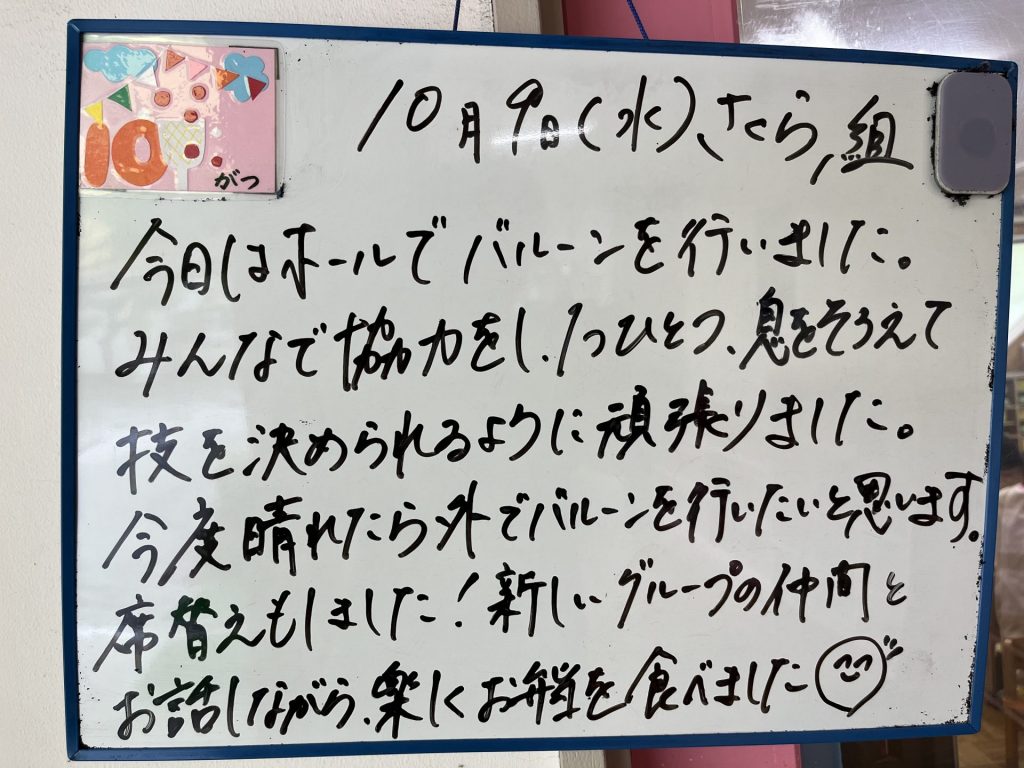 10がつ
10月9日(水)、さくら組
今日はホールでバルーンを行いました。
みんなで協力をし、1つひとつ、息をそろえて
技を決められるように頑張りました。
今度晴れたら外でバルーンを行いたいと思います。
席替えもしました!新しいグループの仲間と
お話しながら、楽しくお弁当を食べました